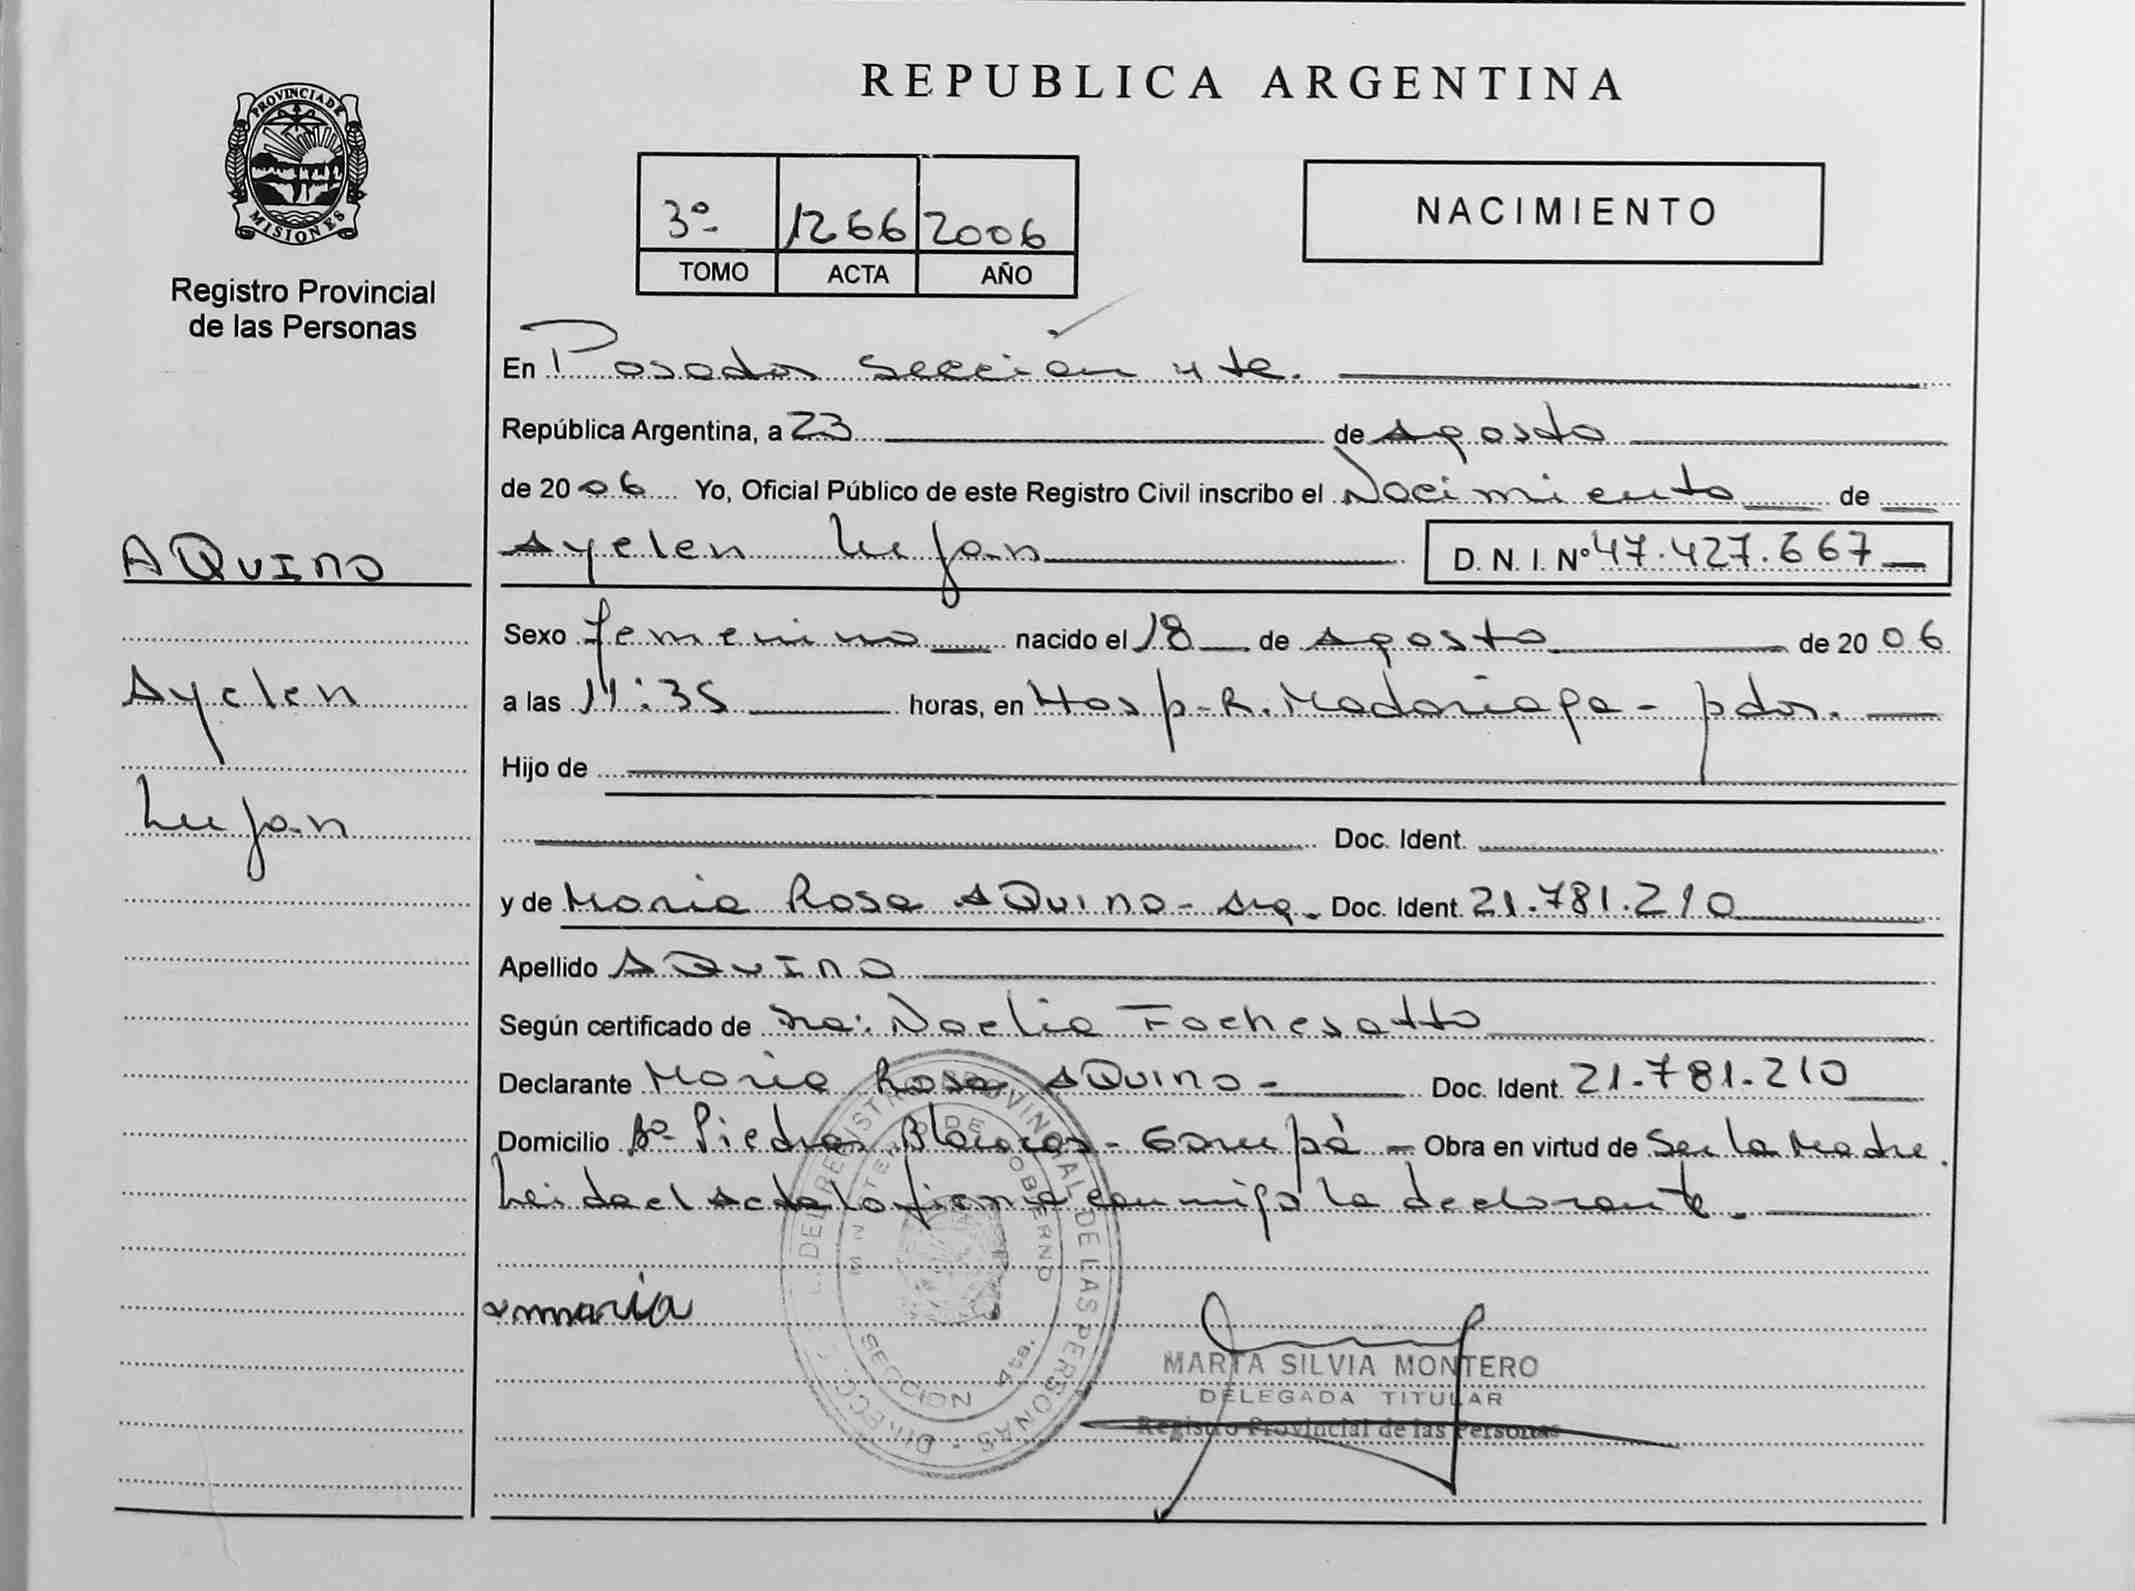 REPUBLICA ARGENTINA
PROVINCIA DE
MISIONES
Registro Provincial
de las Personas
3º 1266 2006
TOMO ACTA AÑO
NACIMIENTO
En Posadas Sección 4 ta.
República Argentina, a 23 de Agosto
de 2006 Yo, Oficial Público de este Registro Civil inscribo el Nacimiento de
AQUINO
Ayelen Lujan D. N. I. Nº 47.427.667
Sexo femenino nacido el 18 de Agosto de 2006
Ayelen
a las 11:35 horas, en Hosp. R. Madariaga - pdas.
Hijo de
Lujan
Doc. Ident.
y de Maria Rosa AQuino - Arg. Doc. Ident. 21.781.210
Apellido AQuINO
Según certificado de Noelia Fochesatto
Declarante Maria Rosa AQuino - Doc. Ident. 21.781.210
Domicilio Bº Piedras Blancas - Garupá - Obra en virtud de Ser la Madre.
Leida el Acta la firma conmigo la declarante.
maria
DIRECC. DEL REGISTRO PROVINCIAL DE LAS PERSONAS
MINISTERIO DE GOBIERNO
SECCION 4ta.
MARTA SILVIA MONTERO
DELEGADA TITULAR
Registro Provincial de las Personas